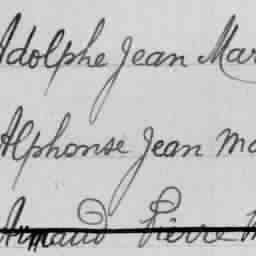 Adolphe Jean Mar
Alphonse Jean Ma
Armand Pierre M